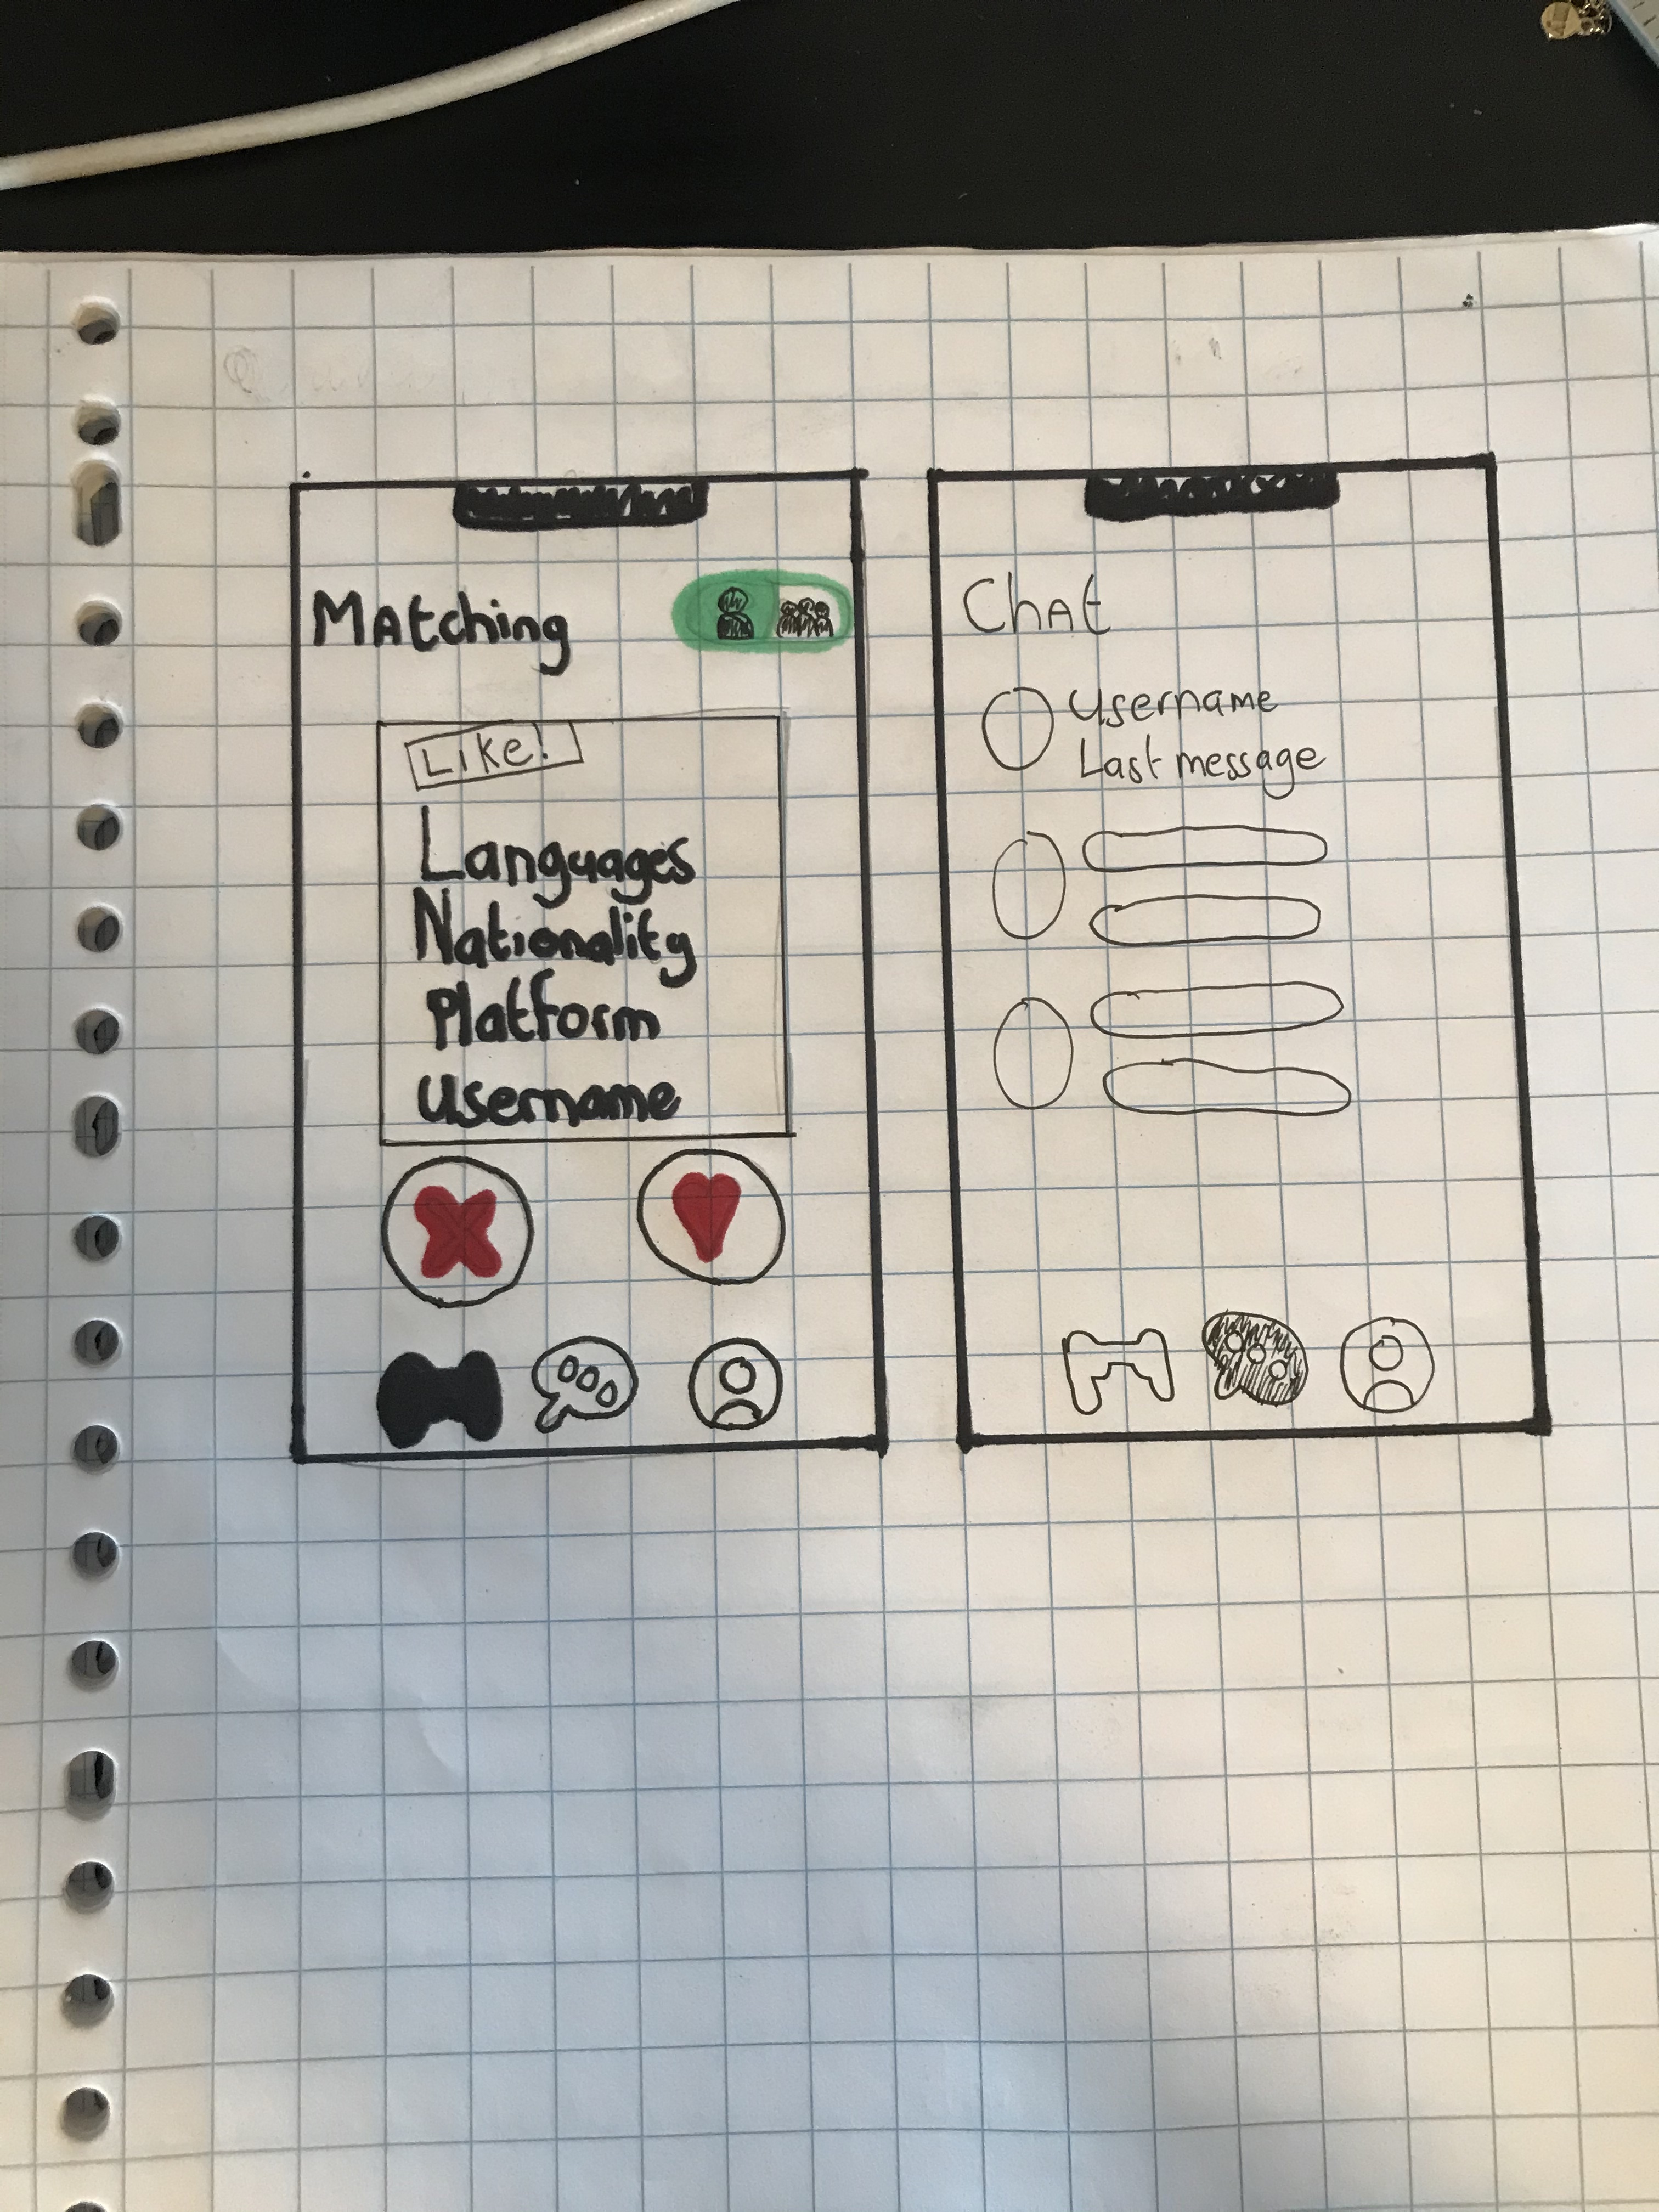 Matching
Like!
Languages
Nationality
Platform
Username
Chat
Username
Last message